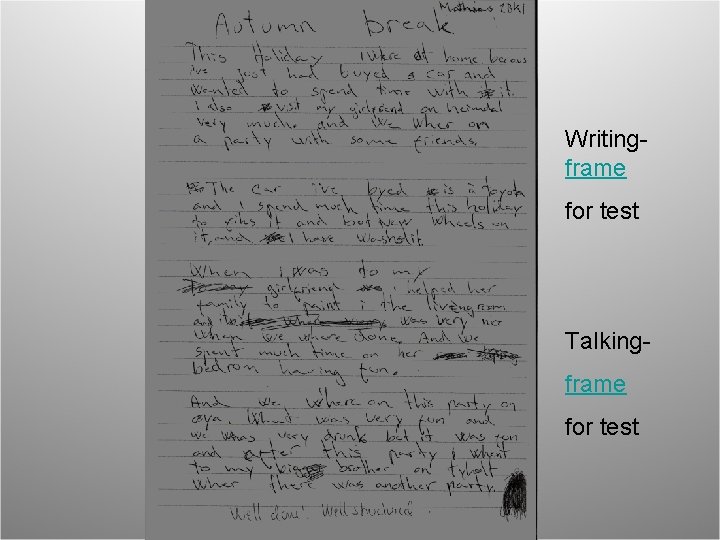 Mathias 2BKI
Autumn break
This Holiday I were at home becous
i've just had buyed a car and
wanted to spend time with it.
i also visit my girlfriend on
very much. and I've wher on
a party with some friends.
The car i've byed is a toyota
and I spend much time this holiday
to it and boot New Wheels on
it, and I have washdit.
When I was to my
girlfriend i helped her
family to paint i the livengroom
and was very nice
when we where done. And we
spent much time on her
bedrom having fun.
And we where on this party on
øya. What was very fun and
we was very drunk but it was fun
and after this party I whent
to my big brother on tyholt
wher there was another party.
Well done! Well structured.
Writing-
frame
for test
Talking-
frame
for test